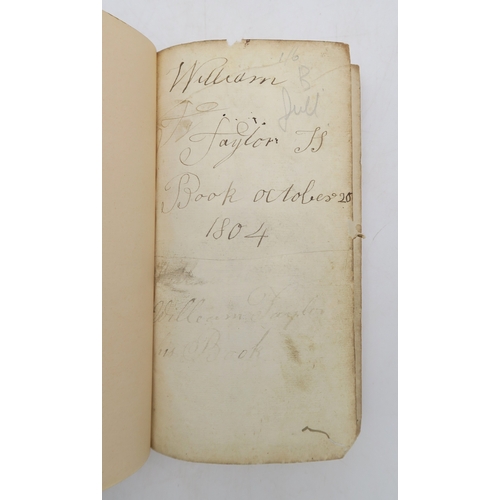 William
B
Taylor IS
Book october 20
1804
William Taylor
his Book